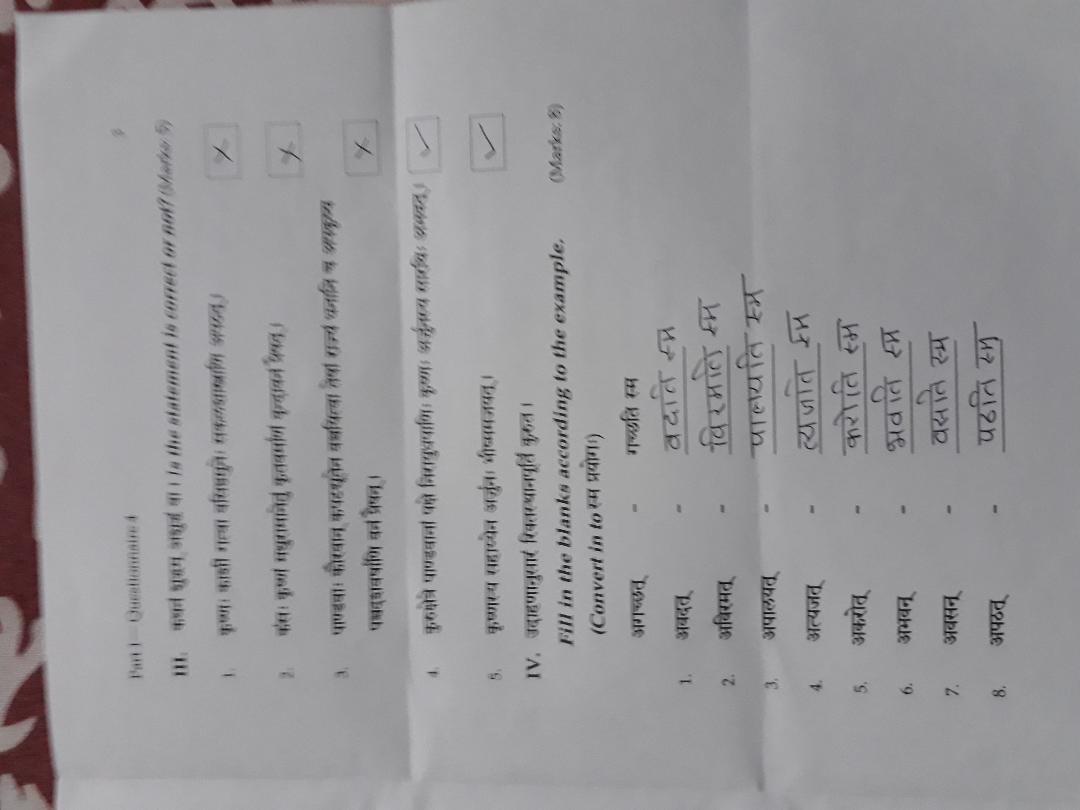 Part I – Questionnaire 4
III. कथनं शुद्धम् अशुद्धं वा । Is the statement is correct or not? (Marks: 5)
1. कृष्णः काशीं गत्वा वसिष्ठमुनेः सकलशास्त्राणि अपठत् । ✗
2. कंसः कृष्णं मथुरामानेतुं कृतवर्माणं वृन्दावनं प्रैषत् । ✗
3. पाण्डवाः कौरवान् कपटद्यूतेन वञ्चयित्वा तेषां राज्यं धनानि च अपहृत्य
पञ्चदशवर्षाणि वनं प्रैषन् । ✗
4. कुरुक्षेत्रे पाण्डवानां पक्षे निरायुधपाणिः कृष्णः अर्जुनस्य सारथिः अभवत् । ✓
5. कृष्णस्य सहाय्येन अर्जुनः भीष्ममजयत् । ✓
IV. उदाहणानुसारं रिक्तस्थानपूर्तिं कुरुत ।
Fill in the blanks according to the example. (Marks: 8)
(Convert in to स्म प्रयोगः)
अगच्छत् - गच्छति स्म
1. अवदत् - वदति स्म
2. अविरमत् - विरमति स्म
3. अपालयत् - पालयति स्म
4. अत्यजत् - त्यजति स्म
5. अकरोत् - करोति स्म
6. अभवन् - भवति स्म
7. अवसन् - वसति स्म
8. अपठत् - पठति स्म